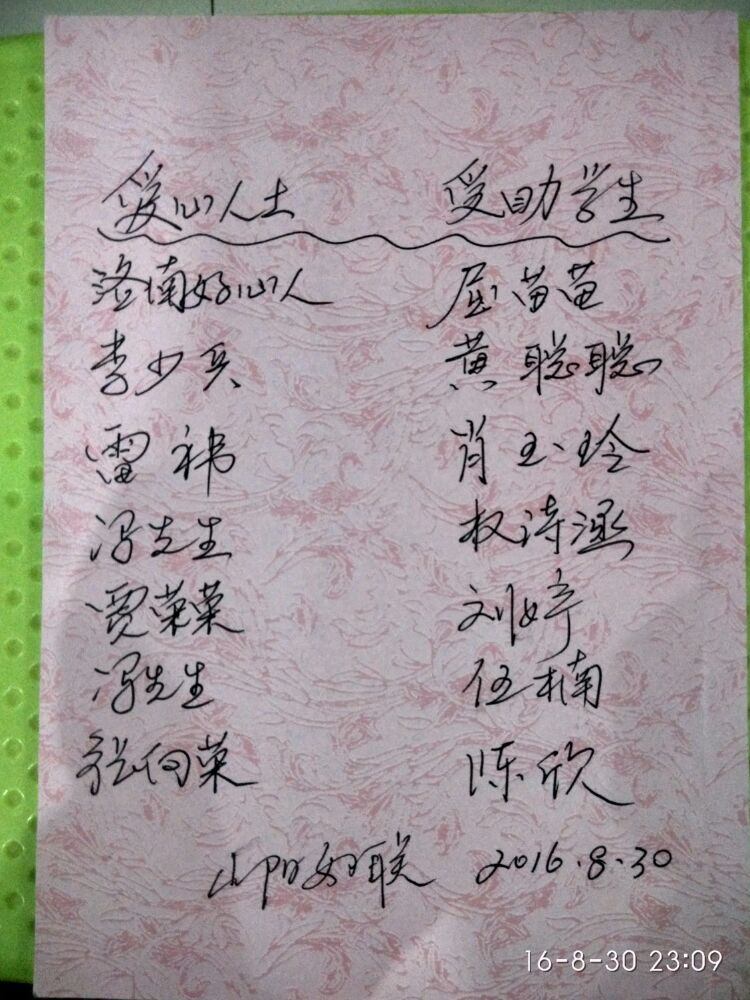 爱心人士 受助学生
洛南好心人 屈苗苗
李少兵 黄聪聪
雷祎 肖玉玲
冯先生 权诗涵
贾荣荣 刘婷
冯先生 伍楠
张向荣 陈欣
山阳妇联 2016.8.30
16-8-30 23:09